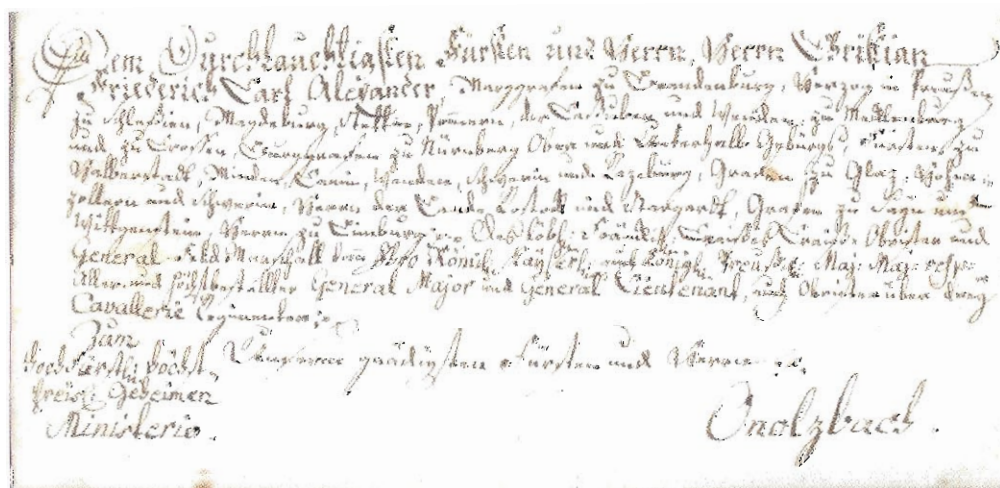 Dem Durchlauchtigsten Fürsten und Herrn, Herrn Christian
Friederich Carl Alexander, Marggrafen zu Brandenburg, Herzog in Preußen
zu Schlesien, Magdeburg, Stettin, Pommern, der Caßuben und Wenden, zu Mecklenburg
und zu Crossen, Burggrafen zu Nürnberg Ober und Unterhalb Gebürgs, Fürsten zu
Halberstadt, Minden, Camin, Wenden, Schwerin und Razeburg, Grafen zu Glaz, Hohen-
zollern und Schwerin, Herrn der Lande Rostock und Stargardt, Grafen zu Sayn und
Wittgenstein, Herrn zu Limburg Des löbl: Fränckis: Craißes Obristen und
General Feld Marschall Ihro Römis. Kayserl: und Königl. Preußis: Maj: Maj: resp:
General Major und General Lieutenant, auch Obristen über drey
Cavallerie Regimenter
Unserm gnädigsten Fürsten und Herrn
Zum
Hochfürstl: Höchst
preißl: Geheimen
Ministerio.
Onolzbach.